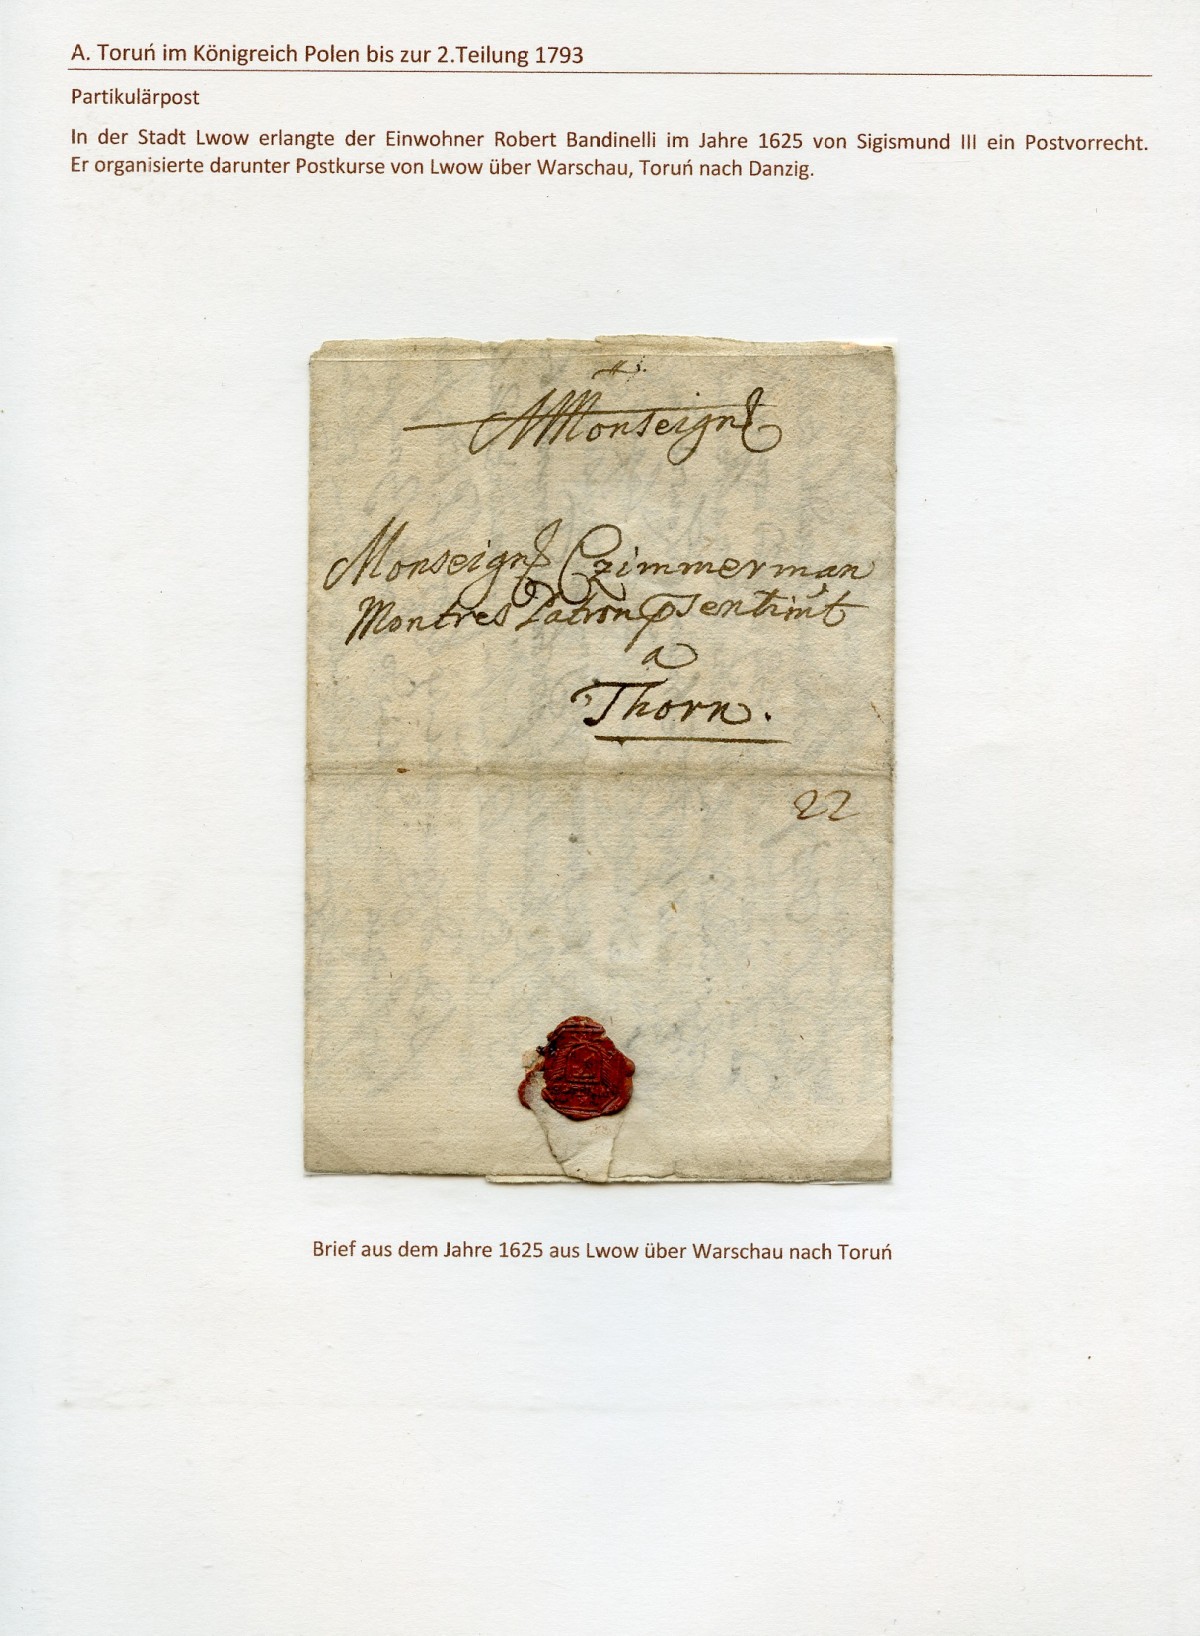 A. Toruń im Königreich Polen bis zur 2.Teilung 1793
Partikulärpost
In der Stadt Lwow erlangte der Einwohner Robert Bandinelli im Jahre 1625 von Sigismund III ein Postvorrecht.
Er organisierte darunter Postkurse von Lwow über Warschau, Toruń nach Danzig.
Monseignr
Monseignr Czimmerman
Montres Patron
a
Thorn.
22
Brief aus dem Jahre 1625 aus Lwow über Warschau nach Toruń